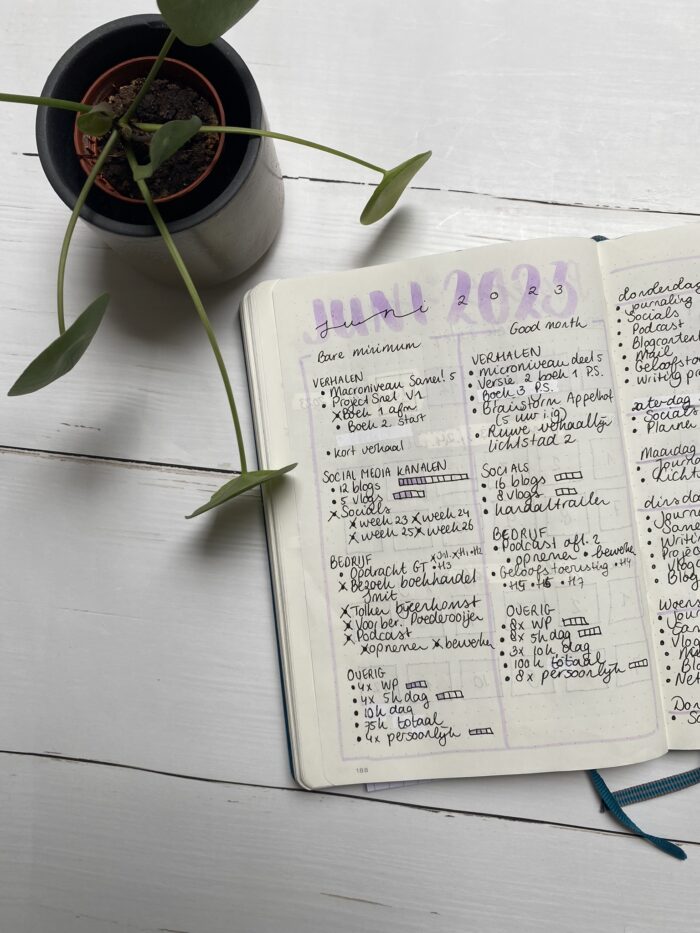 JUNI 2023
juni 2023
Bare minimum
VERHALEN
• Macroniveau Sanel 5
• Project Snel V1
x Boek 1 afm
• Boek 2. Start
• kort verhaal
SOCIAL MEDIA KANALEN
• 12 blogs
• 5 vlogs
x Socials
x week 23 x week 24
x week 25 x week 26
BEDRIJF
• Opdracht GT x H1 • H2
• H3
x Bezoek boekhandel
Smit
x Tolken bijeenkomst
x Voorber. Poederooijen
x Podcast
x opnemen x bewerken
OVERIG
• 4x WP
• 4x 5h dag
• 10h dag
• 75h totaal
• 4x persoonlijk
188
Good month
VERHALEN
• microniveau deel 5
• Versie 2 boek 1 P.S.
• Boek 3 P.S.
• Brainstorm Appelhof
(5 uur i.g)
• Ruwe verhaallijn
lichtstad 2
SOCIALS
• 16 blogs
• 8 vlogs
• kanaaltrailer
BEDRIJF
• Podcast afl. 2
• opnemen • bewerken
• Geloofstoerusting • H4
• H5 • H6 • H7
OVERIG
• 8x WP
• 8x 5h dag
• 3x 10h dag
• 100h totaal
• 8x persoonlijk
donderdag
• journaling
• Socials
• Podcast
• Blogcontent
• Mail
• Geloofsto
• Writing pr
zaterdag
• Social
• Planne
Maandag
• Journa
• Licht
dinsda
• Journa
• Sane
• Writin
• Proje
• Vlog
• Blog
Woens
• Jour
• San
• Vlo
• Bl
• Net
Don
• So